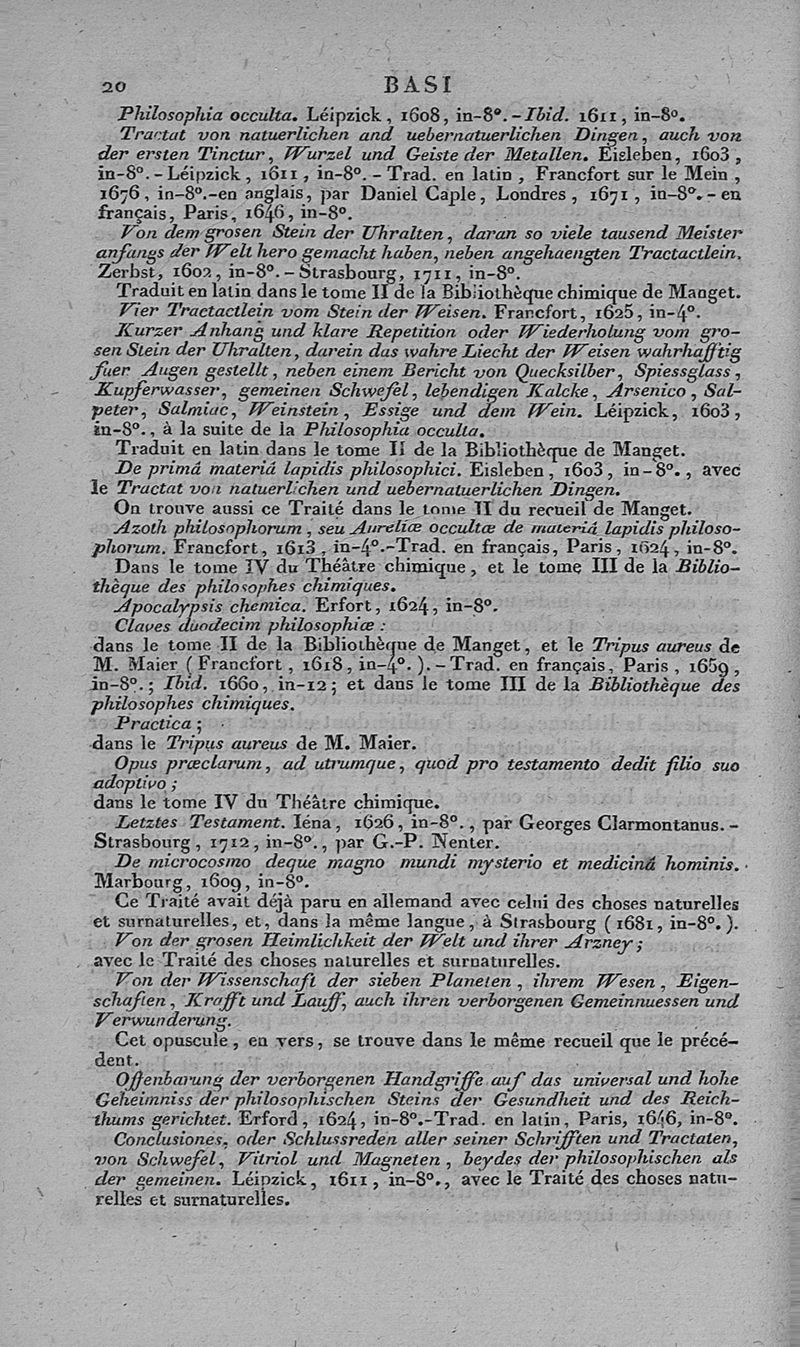 20 BASI
Philosophia occulta. Léipzick, 1608, in-8°.-Ibid. 1611, in-8°.
Tractat von natuerlichen and uebernatuerlichen Dingen, auch von
der ersten Tinctur, Wurzel und Geiste der Metallen. Eisleben, 1603,
in-8°.-Léipzick, 1611, in-8°. - Trad. en latin, Francfort sur le Mein,
1676, in-8°.-en anglais, par Daniel Caple, Londres, 1671, in-8°.-en
français, Paris, 1646, in-8°.
Von dem grosen Stein der Uhralten, daran so viele tausend Meister
anfangs der Welt hero gemacht haben, neben angehaengten Tractactlein.
Zerbst, 1602, in-8°.-Strasbourg, 1711, in-8°.
Traduit en latin dans le tome II de la Bibliothèque chimique de Manget.
Vier Tractactlein vom Stein der Weisen. Francfort, 1625, in-4°.
Kurzer Anhang und klare Repetition oder Wiederholung vom gro-
sen Stein der Uhralten, darein das wahre Liecht der Weisen wahrhafftig
fuer Augen gestellt, neben einem Bericht von Quecksilber, Spiessglass,
Kupferwasser, gemeinen Schwefel, lebendigen Kalcke, Arsenico, Sal-
peter, Salmiac, Weinstein, Essige und dem Wein. Léipzick, 1603,
in-8°., à la suite de la Philosophia occulta.
Traduit en latin dans le tome II de la Bibliothèque de Manget.
De primâ materiâ lapidis philosophici. Eisleben, 1603, in-8°., avec
le Tractat von natuerlichen und uebernatuerlichen Dingen.
On trouve aussi ce Traité dans le tome II du recueil de Manget.
Azoth philosophorum, seu Aureliæ occultæ de materiâ lapidis philoso-
phorum. Francfort, 1613, in-4°.-Trad. en français, Paris, 1624, in-8°.
Dans le tome IV du Théâtre chimique, et le tome III de la Biblio-
thèque des philosophes chimiques.
Apocalypsis chemica. Erfort, 1624, in-8°.
Claves duodecim philosophiæ :
dans le tome II de la Bibliothèque de Manget, et le Tripus aureus de
M. Maier (Francfort, 1618, in-4°.).-Trad. en français, Paris, 1659,
in-8°.; Ibid. 1660, in-12; et dans le tome III de la Bibliothèque des
philosophes chimiques.
Practica;
dans le Tripus aureus de M. Maier.
Opus præclarum, ad utrumque, quod pro testamento dedit filio suo
adoptivo;
dans le tome IV du Théâtre chimique.
Letztes Testament. Iéna, 1626, in-8°., par Georges Clarmontanus.-
Strasbourg, 1712, in-8°., par G.-P. Nenter.
De microcosmo deque magno mundi mysterio et medicinâ hominis.
Marbourg, 1609, in-8°.
Ce Traité avait déjà paru en allemand avec celui des choses naturelles
et surnaturelles, et, dans la même langue, à Strasbourg (1681, in-8°.).
Von der grosen Heimlichkeit der Welt und ihrer Arzney;
avec le Traité des choses naturelles et surnaturelles.
Von der Wissenschaft der sieben Planeten, ihrem Wesen, Eigen-
schaften, Krafft und Lauff, auch ihren verborgenen Gemeinnuessen und
Verwunderung.
Cet opuscule, en vers, se trouve dans le même recueil que le précé-
dent.
Offenbarung der verborgenen Handgriffe auf das universal und hohe
Geheimniss der philosophischen Steins der Gesundheit und des Reich-
thums gerichtet. Erford, 1624, in-8°.-Trad. en latin, Paris, 1646, in-8°.
Conclusiones, oder Schlussreden aller seiner Schrifften und Tractaten,
von Schwefel, Vitriol und Magneten, beydes der philosophischen als
der gemeinen. Léipzick, 1611, in-8°., avec le Traité des choses natu-
relles et surnaturelles.